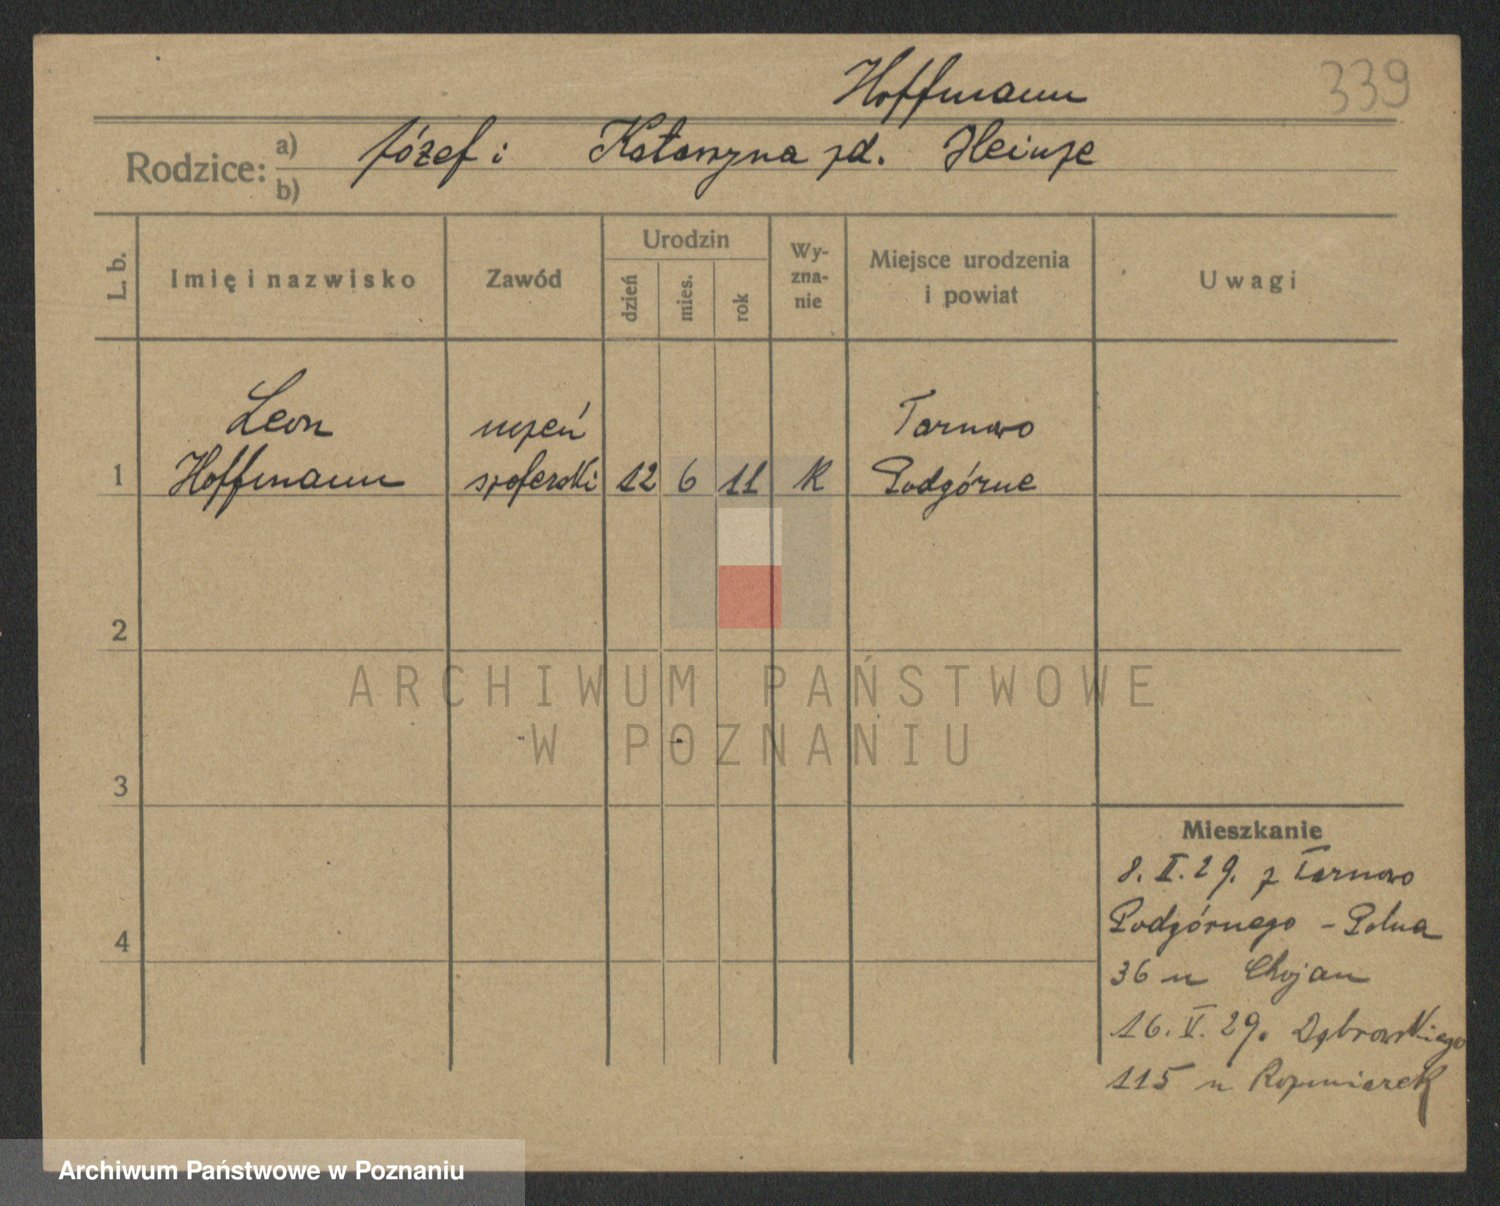 Hoffmann
339
Rodzice: a) Józef i Katarzyna zd. Heinze
b)
L. b.
Imię i nazwisko
Zawód
Urodzin
dzień
mies.
rok
Wy-
zna-
nie
Miejsce urodzenia
i powiat
Uwagi
Leon uczeń Tarnowo
1 Hoffmann szoferski 12 6 11 k Podgórne
2
ARCHIWUM PAŃSTWOWE
W POZNANIU
3
Mieszkanie
8. II. 29. z Tarnowo
Podgórnego - Polna
4
36 u Chojan
16. V. 29. Dąbrowskiego
115 u Rozmiarek
Archiwum Państwowe w Poznaniu